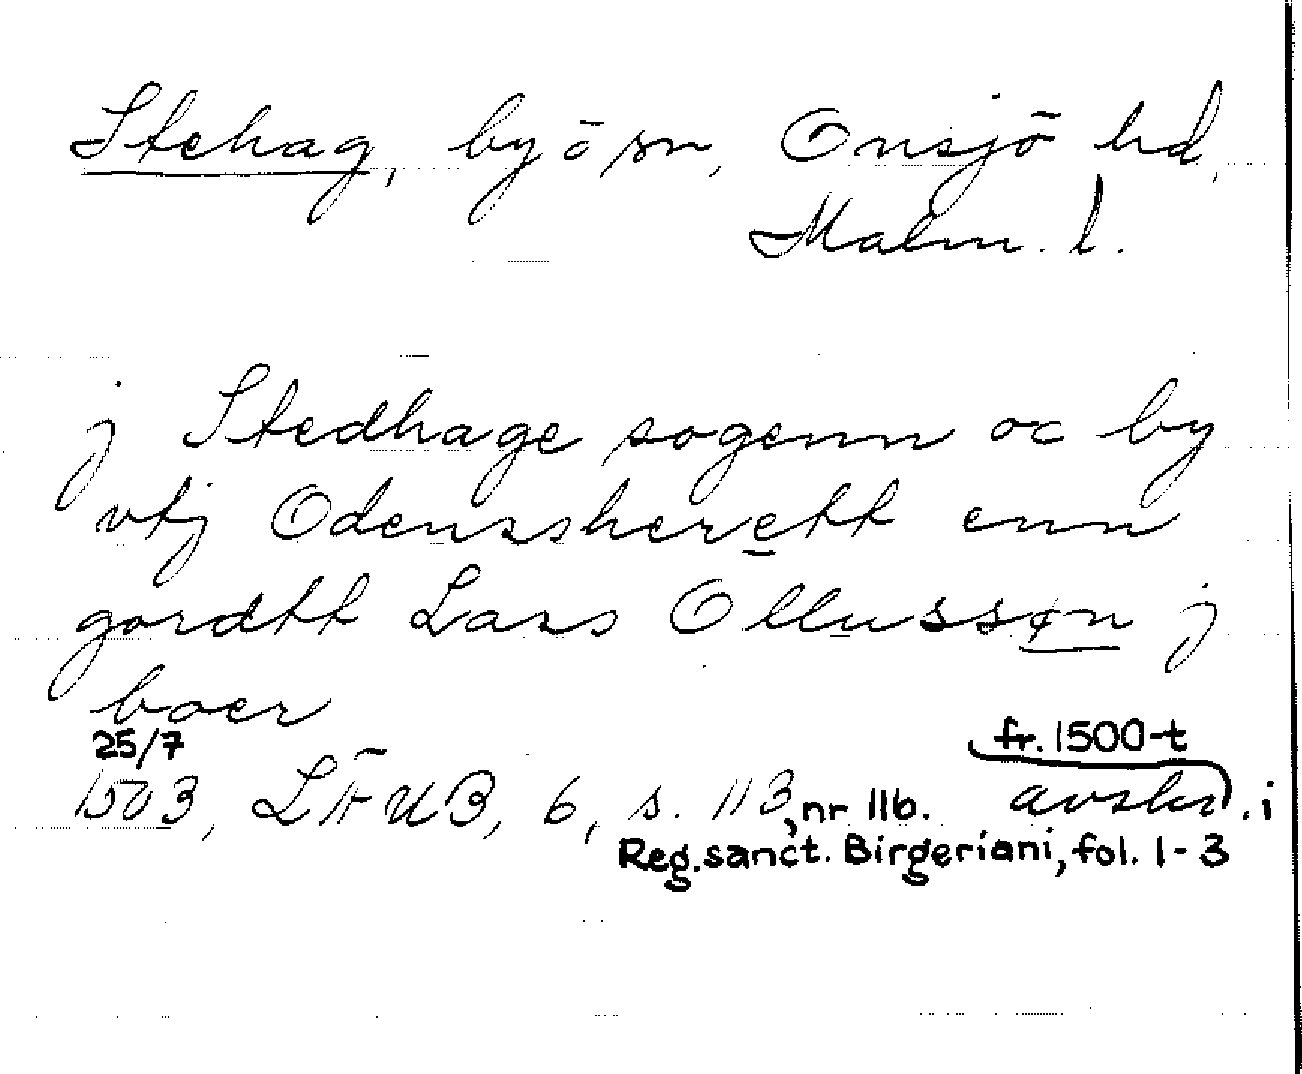 Stehag, by ō sn, Onsjō hd,
Malm. l.
j Stedhage sogenn oc by
vtj Odenssherett enn
gordtt Lass Ollussøn j
boer
25/7
fr. 1500-t
1503, LÄUB, 6, s. 113, nr 116. avskr. i
Reg. sanct. Birgeriani, fol. 1-3